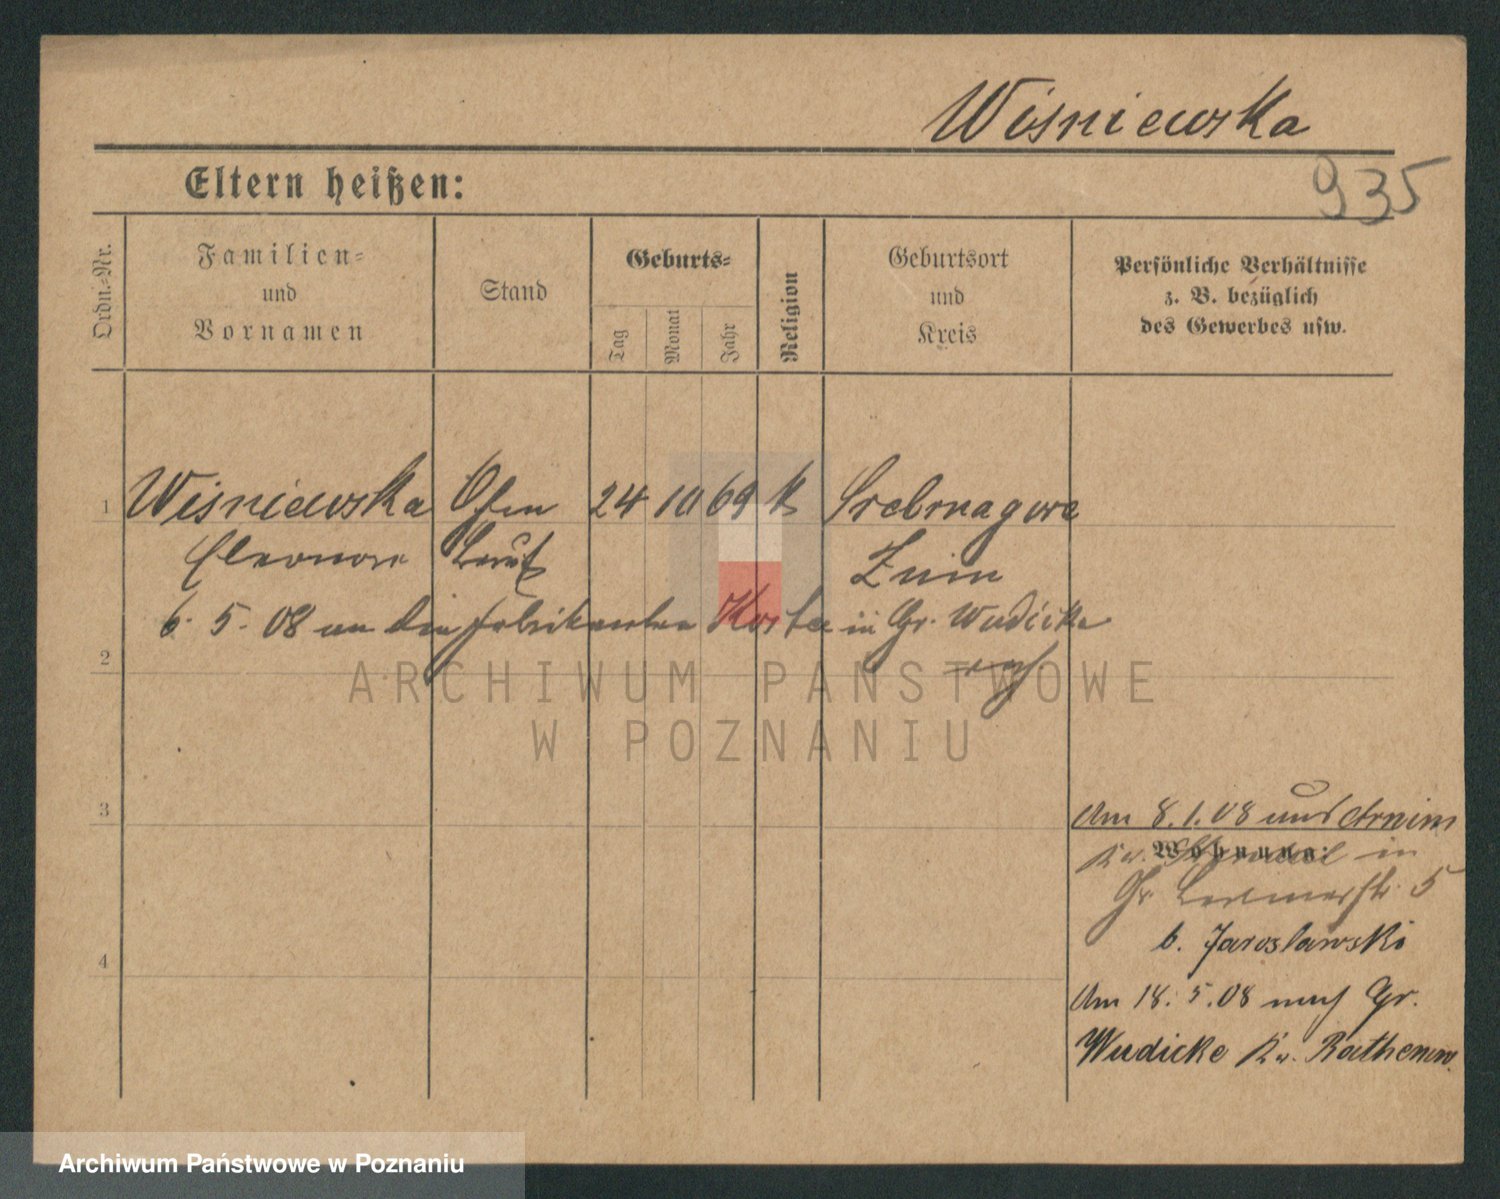 Wisniewska
935
Eltern heißen:
Ordn.-Nr.
Familien-
und
Vornamen
Stand
Geburts-
Tag
Monat
Jahr
Religion
Geburtsort
und
Kreis
Persönliche Verhältnisse
z. B. bezüglich
des Gewerbes usw.
1 Wisniewska 24 10 69 k Srebrnagora
Eleonore Znin
6. 5. 08 an die in Gr. Wudicke
2
ARCHIWUM PAŃSTWOWE
W POZNANIU
3
Am 8. 1. 08 Arnim
Kr. in
Wohnung:
Gr. 5
b. Jaroslawski
4
Am 18. 5. 08 nach Gr.
Wudicke Kr. Rathenow.
Archiwum Państwowe w Poznaniu